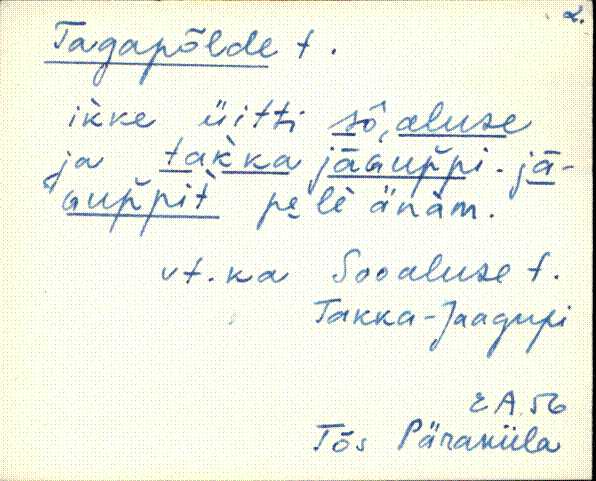 2.
Tagapõlde t.
ikke üitti sô̭aluse
ja takka jāɢup̆pi. jā-
ɢup̆pit pe̮le änàm.
vt. ka Sooaluse t.
Takka-Jaagupi
EA. 56
Tõs Päraküla